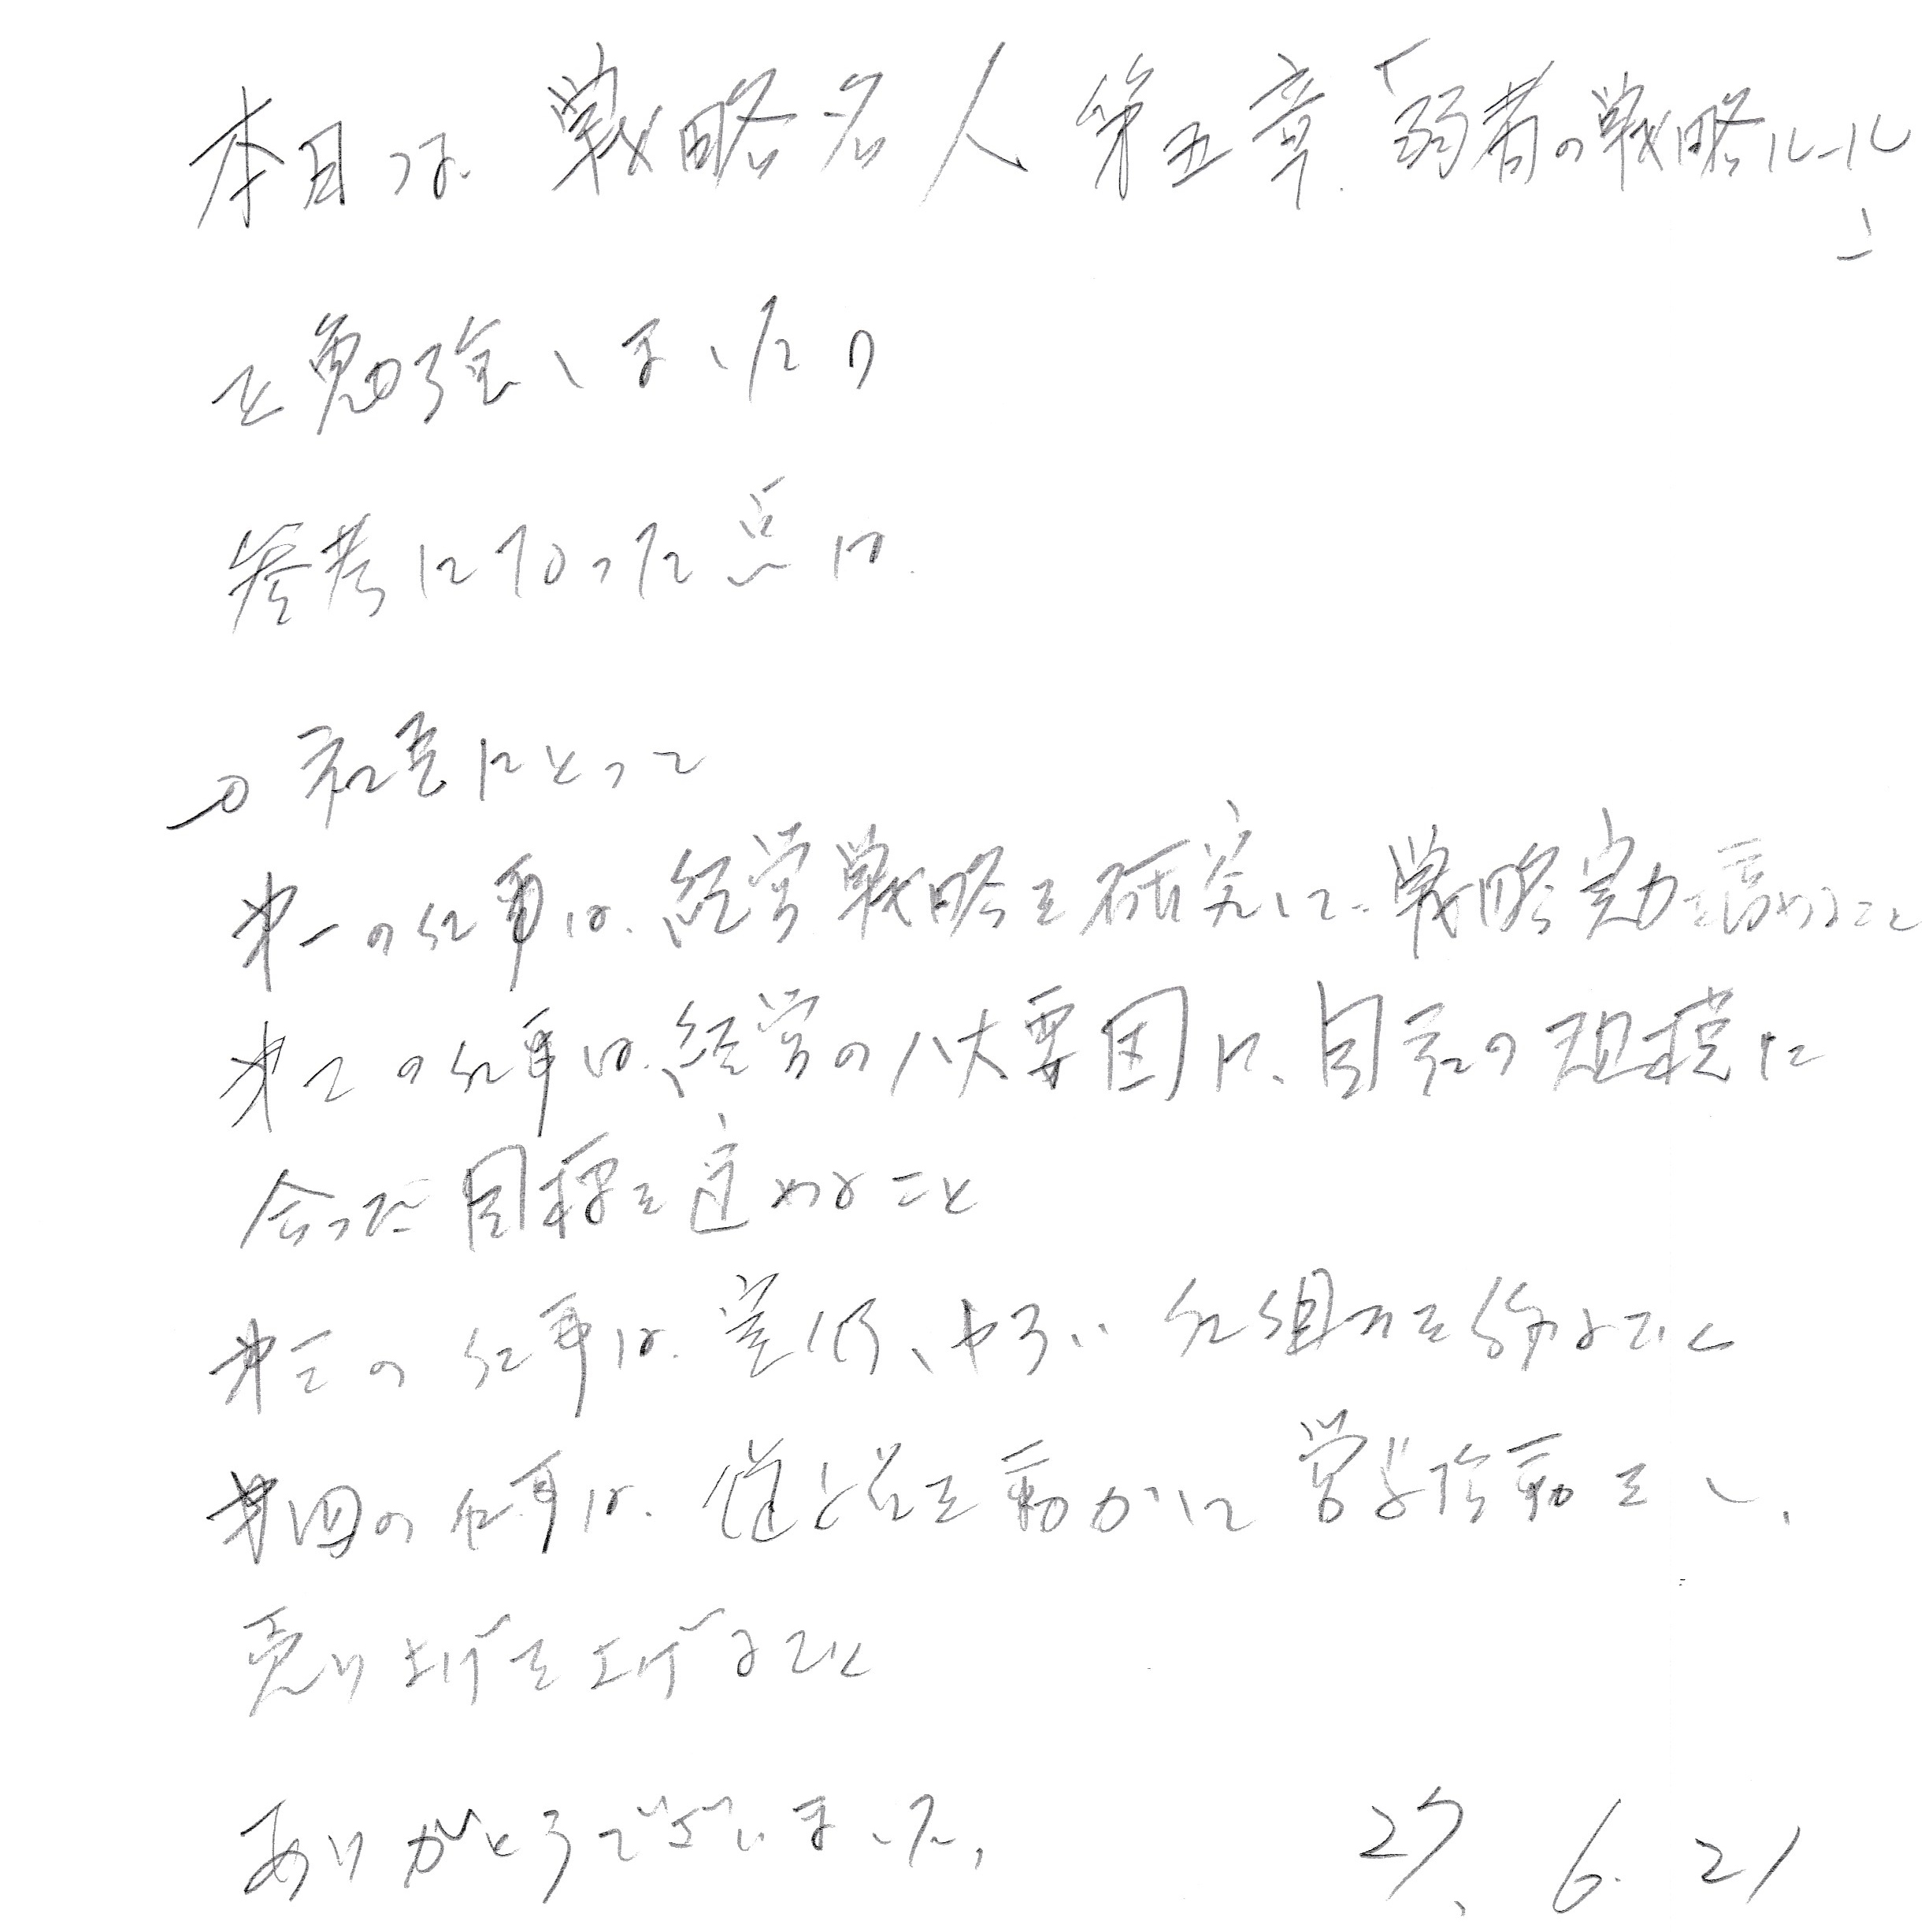 本日は 戦略名人 第五章「弱者の戦略ルール」
を勉強しました
参考になった点は
○社長にとって
第一の仕事は、経営戦略を研究して、戦略実力を高めること
第二の仕事は、経営の八大要因に、自社の規模に
合った目標を定めること
第三の仕事は、実行しやすい仕組みを作ること
第四の仕事は、社員を動かして営業活動をし、
売り上げを上げること
ありがとうございました。 27. 6. 21